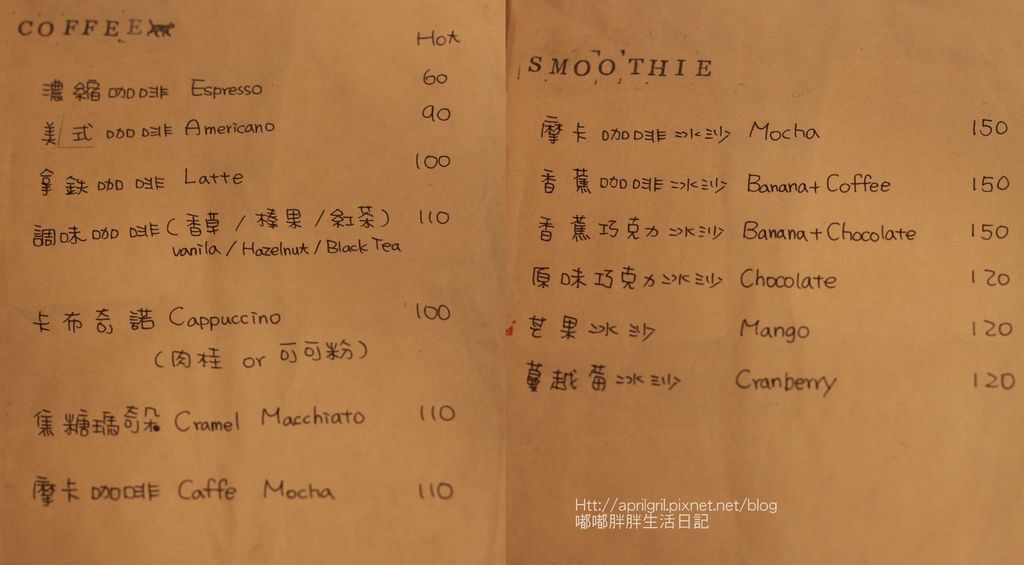 COFFEE
Hot
濃縮咖啡 Espresso 60
美式咖啡 Americano 90
拿鉄咖啡 Latte 100
調味咖啡(香草/榛果/紅茶) 110
vanila/Hazelnut/Black Tea
卡布奇諾 Cappuccino 100
(肉桂 or 可可粉)
焦糖瑪奇朵 Cramel Macchiato 110
摩卡咖啡 Caffe Mocha 110
SMOOTHIE
摩卡咖啡冰沙 Mocha 150
香蕉咖啡冰沙 Banana+Coffee 150
香蕉巧克力冰沙 Banana+Chocolate 150
原味巧克力冰沙 Chocolate 120
芒果冰沙 Mango 120
蔓越莓冰沙 Cranberry 120
Htt://aprilgril.pixnet.net/blog
嘟嘟胖胖生活日記